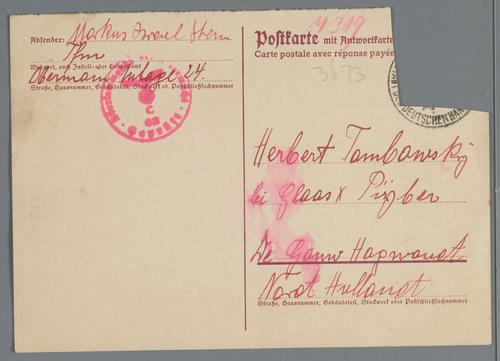 Absender: Markus Israel Stern
Ffm
Wohnort, auch Zustell- oder Leitpostamt
Obermain Anlage 24.
Straße, Hausnummer, Gebäudeteil, Stockwerk od. Postschließfachnummer
C
62
19319
Postkarte mit Antwortkarte
Carte postale avec réponse payée
3673
DEUTSCHEN HAN
Herbert Tombowsky
bei Claas
De Gouw Hogwoudt
Nord Hollandt
Straße, Hausnummer, Gebäudeteil, Stockwerk oder Postschließfachnummer